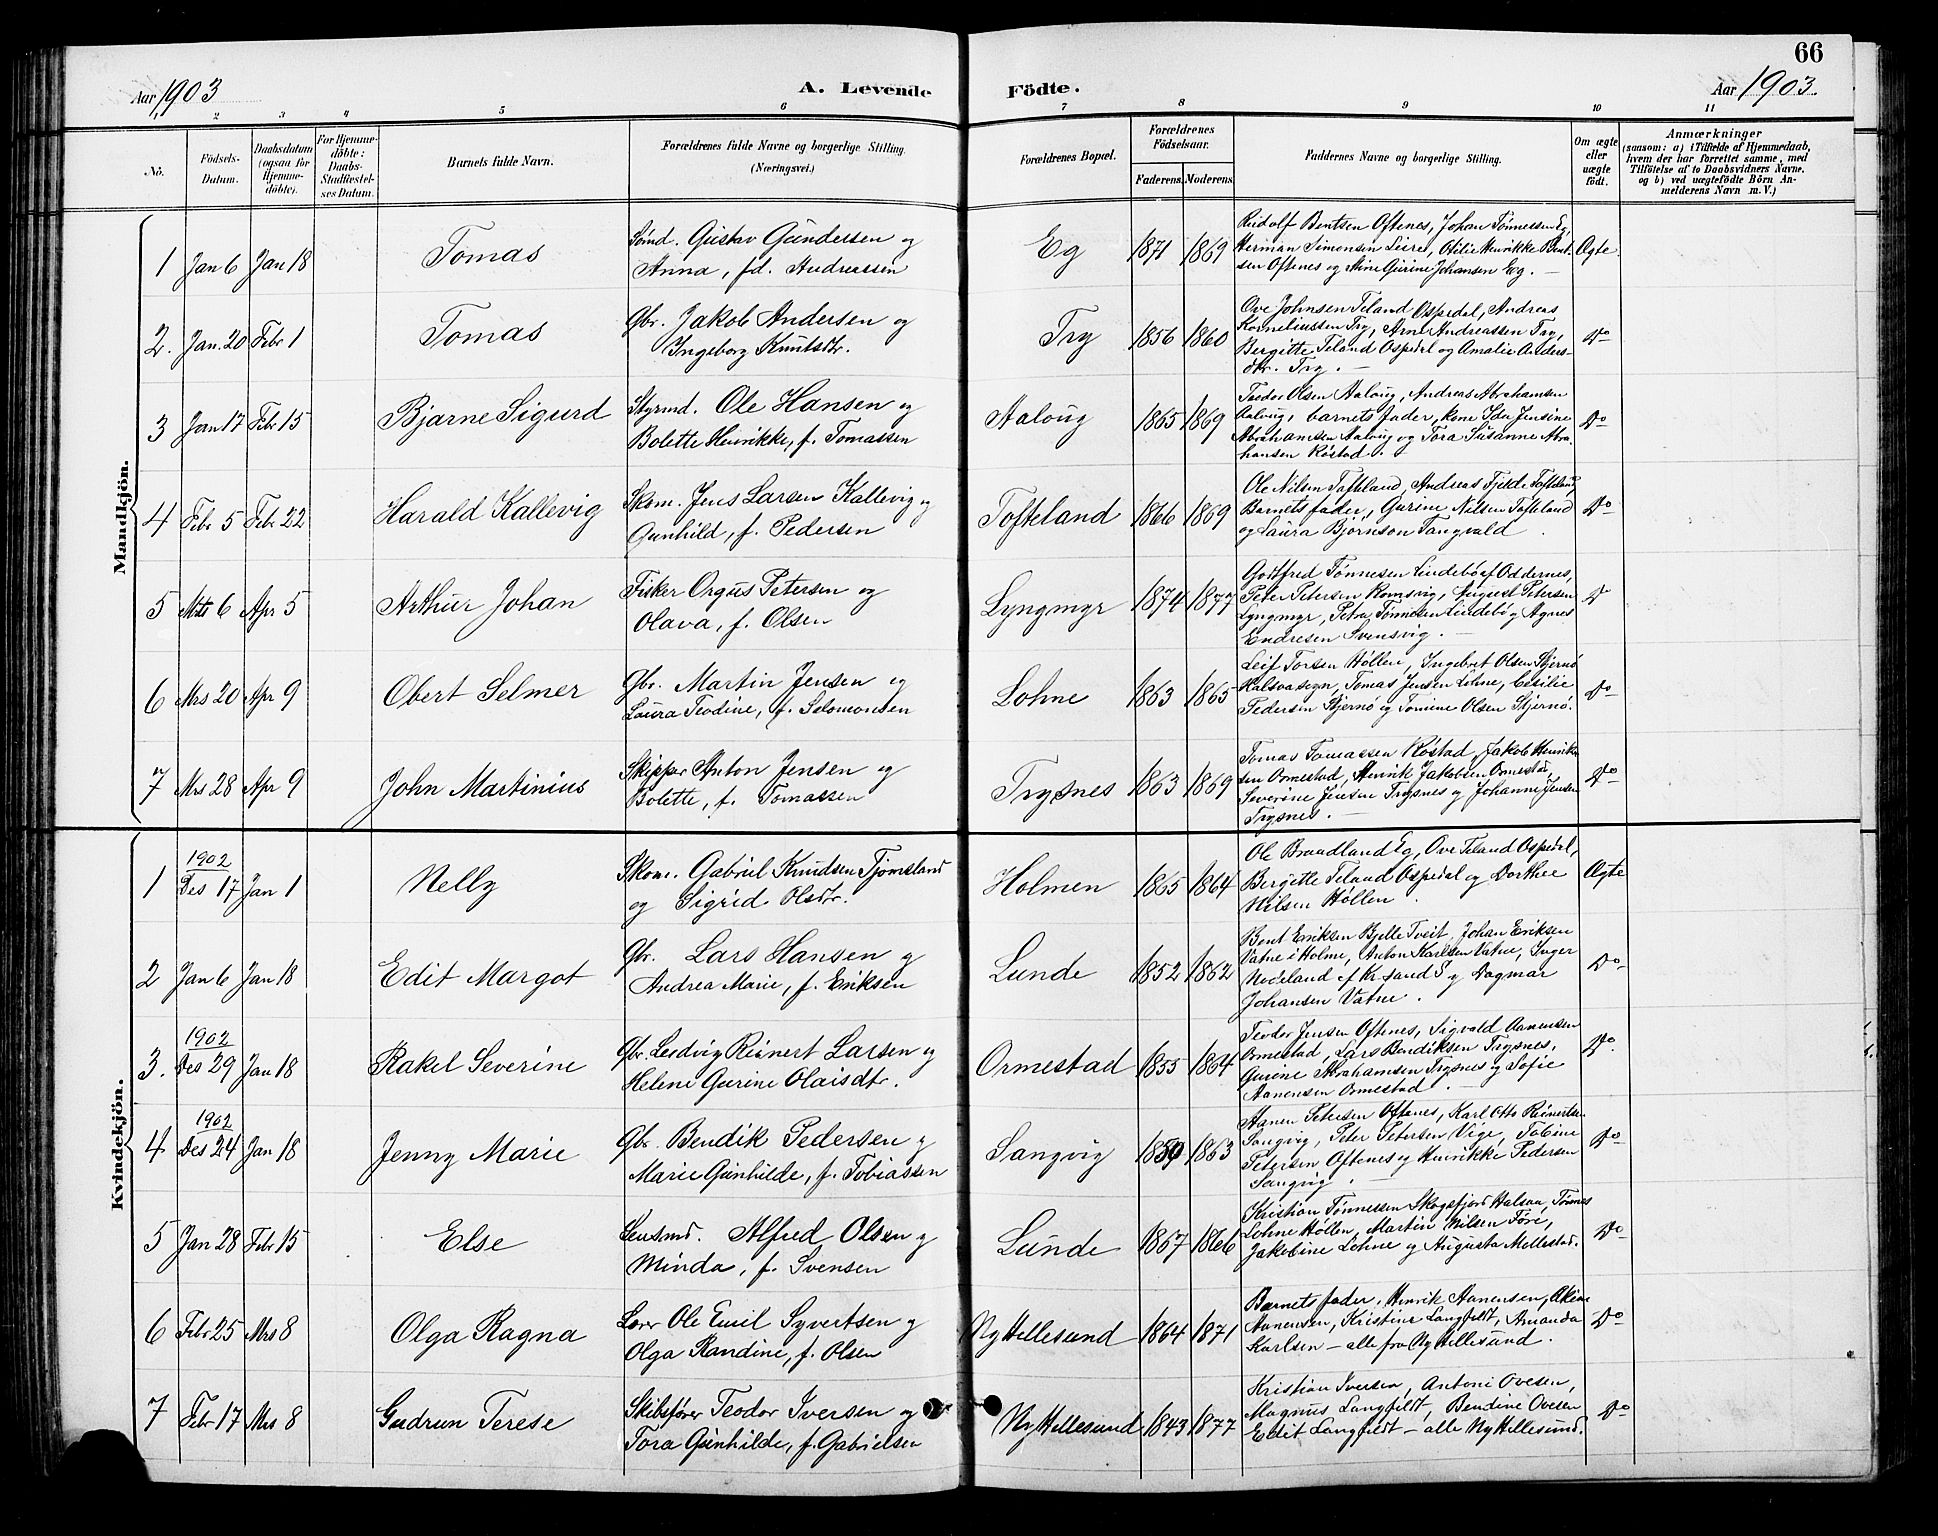 66
Aar 1903
A. Levende
Födte.
Aar 1903.
1 2 3 4 5 6 7 8 9 10 11
No.
Födsels-
Datum.
Daabsdatum
(ogsaa for
Hjemme-
döbte).
For Hjemme-
döbte:
Daabs-
Stadfæstel-
ses Datum.
Barnets fulde Navn.
Forældrenes fulde Navne og borgerlige Stilling.
(Næringsvei.)
Forældrenes Bopæl.
Forældrenes
Födselsaar.
Faderens. Moderens.
Faddernes Navne og borgerlige Stilling.
Om ægte
eller
uægte
födt.
Anmærkninger
(saasom: a) i Tilfælde af Hjemmedaab,
hvem der har forrettet samme, med
Tilföielse af to Daabsvidners Navne,
og b) ved uægtefödte Börn An-
melderens Navn m. V.)
Mandkjön.
1 Jan 6 Jan 18 Tomas
Sömd. Gustav Gundersen og
Anna, fd. Andreassen
Eg 1871 1869
Rudolf Bentsen Oftenes, Johan Tønnessen Eg,
Herman Simonsen Leire, Otilie Henrikke Bent-
sen Oftenes og Stine Gurine Johansen Eg. —
Ægte
2. Jan. 20 Febr 1 Tomas
Gbr. Jakob Andersen og
Ingeborg Knutsdtr.
Try 1856 1860
Ove Johnsen Teland Ospedal, Andreas
Korneliussen Try, Arne Andreassen Try,
Bergitte Teland Ospedal og Amalie Anders-
dtr. Try. —
Do
3 Jan 17 Febr 15 Bjarne Sigurd
Styrmd. Ole Hansen og
Bolette Henrikke, f. Tomassen
Aaloug 1865 1869
Teodor Olsen Aaloug, Andreas Abrahamsen
Aaloug, barnets fader, kone Ida Jensine
Abrahamsen Aaloug og Tora Susanne Abra-
hamsen Røstad.
Do
4 Febr 5 Febr 22 Harald Kallevig
Skom. Jens Larsen Kallevig og
Gunhild, f. Pedersen
Tofteland 1866 1869
Ole Nilsen Tofteland, Andreas Fjelde Tofteland,
Barnets fader, Gurine Nilsen Tofteland
og Laura Bjørnson Tangvald.
Do
5 Mrs 6 Apr 5 Arthur Johan
Fisker Orgus Petersen og
Olava, f. Olsen
Lyngmyr 1874 1877
Godtfred Tønnesen Lindebø af Oddernes,
Peter Petersen Romsvig, August Petersen
Lyngmyr, Petra Tønnesen Lindebø og Agnes
Endresen Svensvig. —
Do
6 Mrs 20 Apr 9 Obert Selmer
Gbr. Martin Jensen og
Laura Teodine, f. Salomonsen
Lohne 1863 1865
Leif Torsen Høllen, Ingebret Olsen Stjernø
Halsvasogn, Tomas Jensen Lohne, Cesilie
Pedersen Stjernø og Tomine Olsen Stjernø.
Do
7 Mrs 28 Apr 9 John Martinius
Skipper Anton Jensen og
Bolette, f. Tomassen
Trysnes 1863 1869
Tomas Tomassen Røstad, Jakob Henrik-
sen Ormestad, Henrik Jakobsen Ormestad,
Severine Jensen Trysnes og Johanne Jensen
Trysnes. —
Do
Kvindekjön.
1 1902 Des 17 Jan 1 Nelly
Skom. Gabriel Knudsen Tjomsland
og Sigrid Olsdtr.
Holmen 1865 1864
Ole Braadland Eg, Ove Teland Ospedal,
Bergitte Teland Ospedal og Dorthee
Nilsen Høllen.
Ægte
2 Jan 6 Jan 18 Edit Margot
Gbr. Lars Hansen og
Andrea Marie, f. Eriksen
Lunde 1852 1862
Bent Eriksen Bjelle Tveit, Johan Eriksen
Vatne i Holme, Anton Karlsen Vatne, Inger
Nodeland af Kr.sand S og Dagmar
Johansen Vatne.
Do
3. 1902 Des 29 Jan 18 Rakel Severine
Gbr. Lesdvig Reinert Larsen og
Helene Gurine Olaisdtr.
Ormestad 1855 1864
Teodor Jensen Oftenes, Sigvald Aanensen
Ormestad, Lars Bendiksen Trysnes,
Gurine Abrahamsen Trysnes og Sofie
Aanensen Ormestad. —
Do.
4 1902 Des 24 Jan 18 Jenny Marie
Gbr. Bendik Pedersen og
Marie Gunhilde, f. Tobiassen
Sangvig 1859 1863
Aanen Petersen Oftenes, Karl Otto Reinertsen
Sangvig, Peter Petersen Vige, Tobine
Petersen Oftenes og Henrikke Pedersen
Sangvig. —
Do
5 Jan 28 Febr 15 Else
Lensmd. Alfred Olsen og
Minda, f. Svensen
Lunde 1867 1866
Kristian Tønnessen Skogsfjord Halsaa, Tønnes
Lohne Høllen, Martin Nilsen Føre,
Jakobine Lohne og Augusta Mellestad.
Do
6 Febr 25 Mrs 8 Olga Ragna
Loser Ole Emil Syvertsen og
Olga Randine, f. Olsen
Ny Hellesund 1864 1871
Barnets fader, Henrik Aanensen,
Aanensen, Kristine Langfeldt, Amanda
Karlsen — alle fra Ny Hellesund.
Do
7 Febr 17 Mrs 8 Gudrun Terese
Skibsfører Teodor Iversen og
Tora Gunhilde, f. Gabrielsen
Ny Hellesund 1843 1877
Kristian Iversen, Antoni Ovesen,
Magnus Langfeldt, Bendine Ovesen
Edit Langfeldt — alle Ny Hellesund.
Do